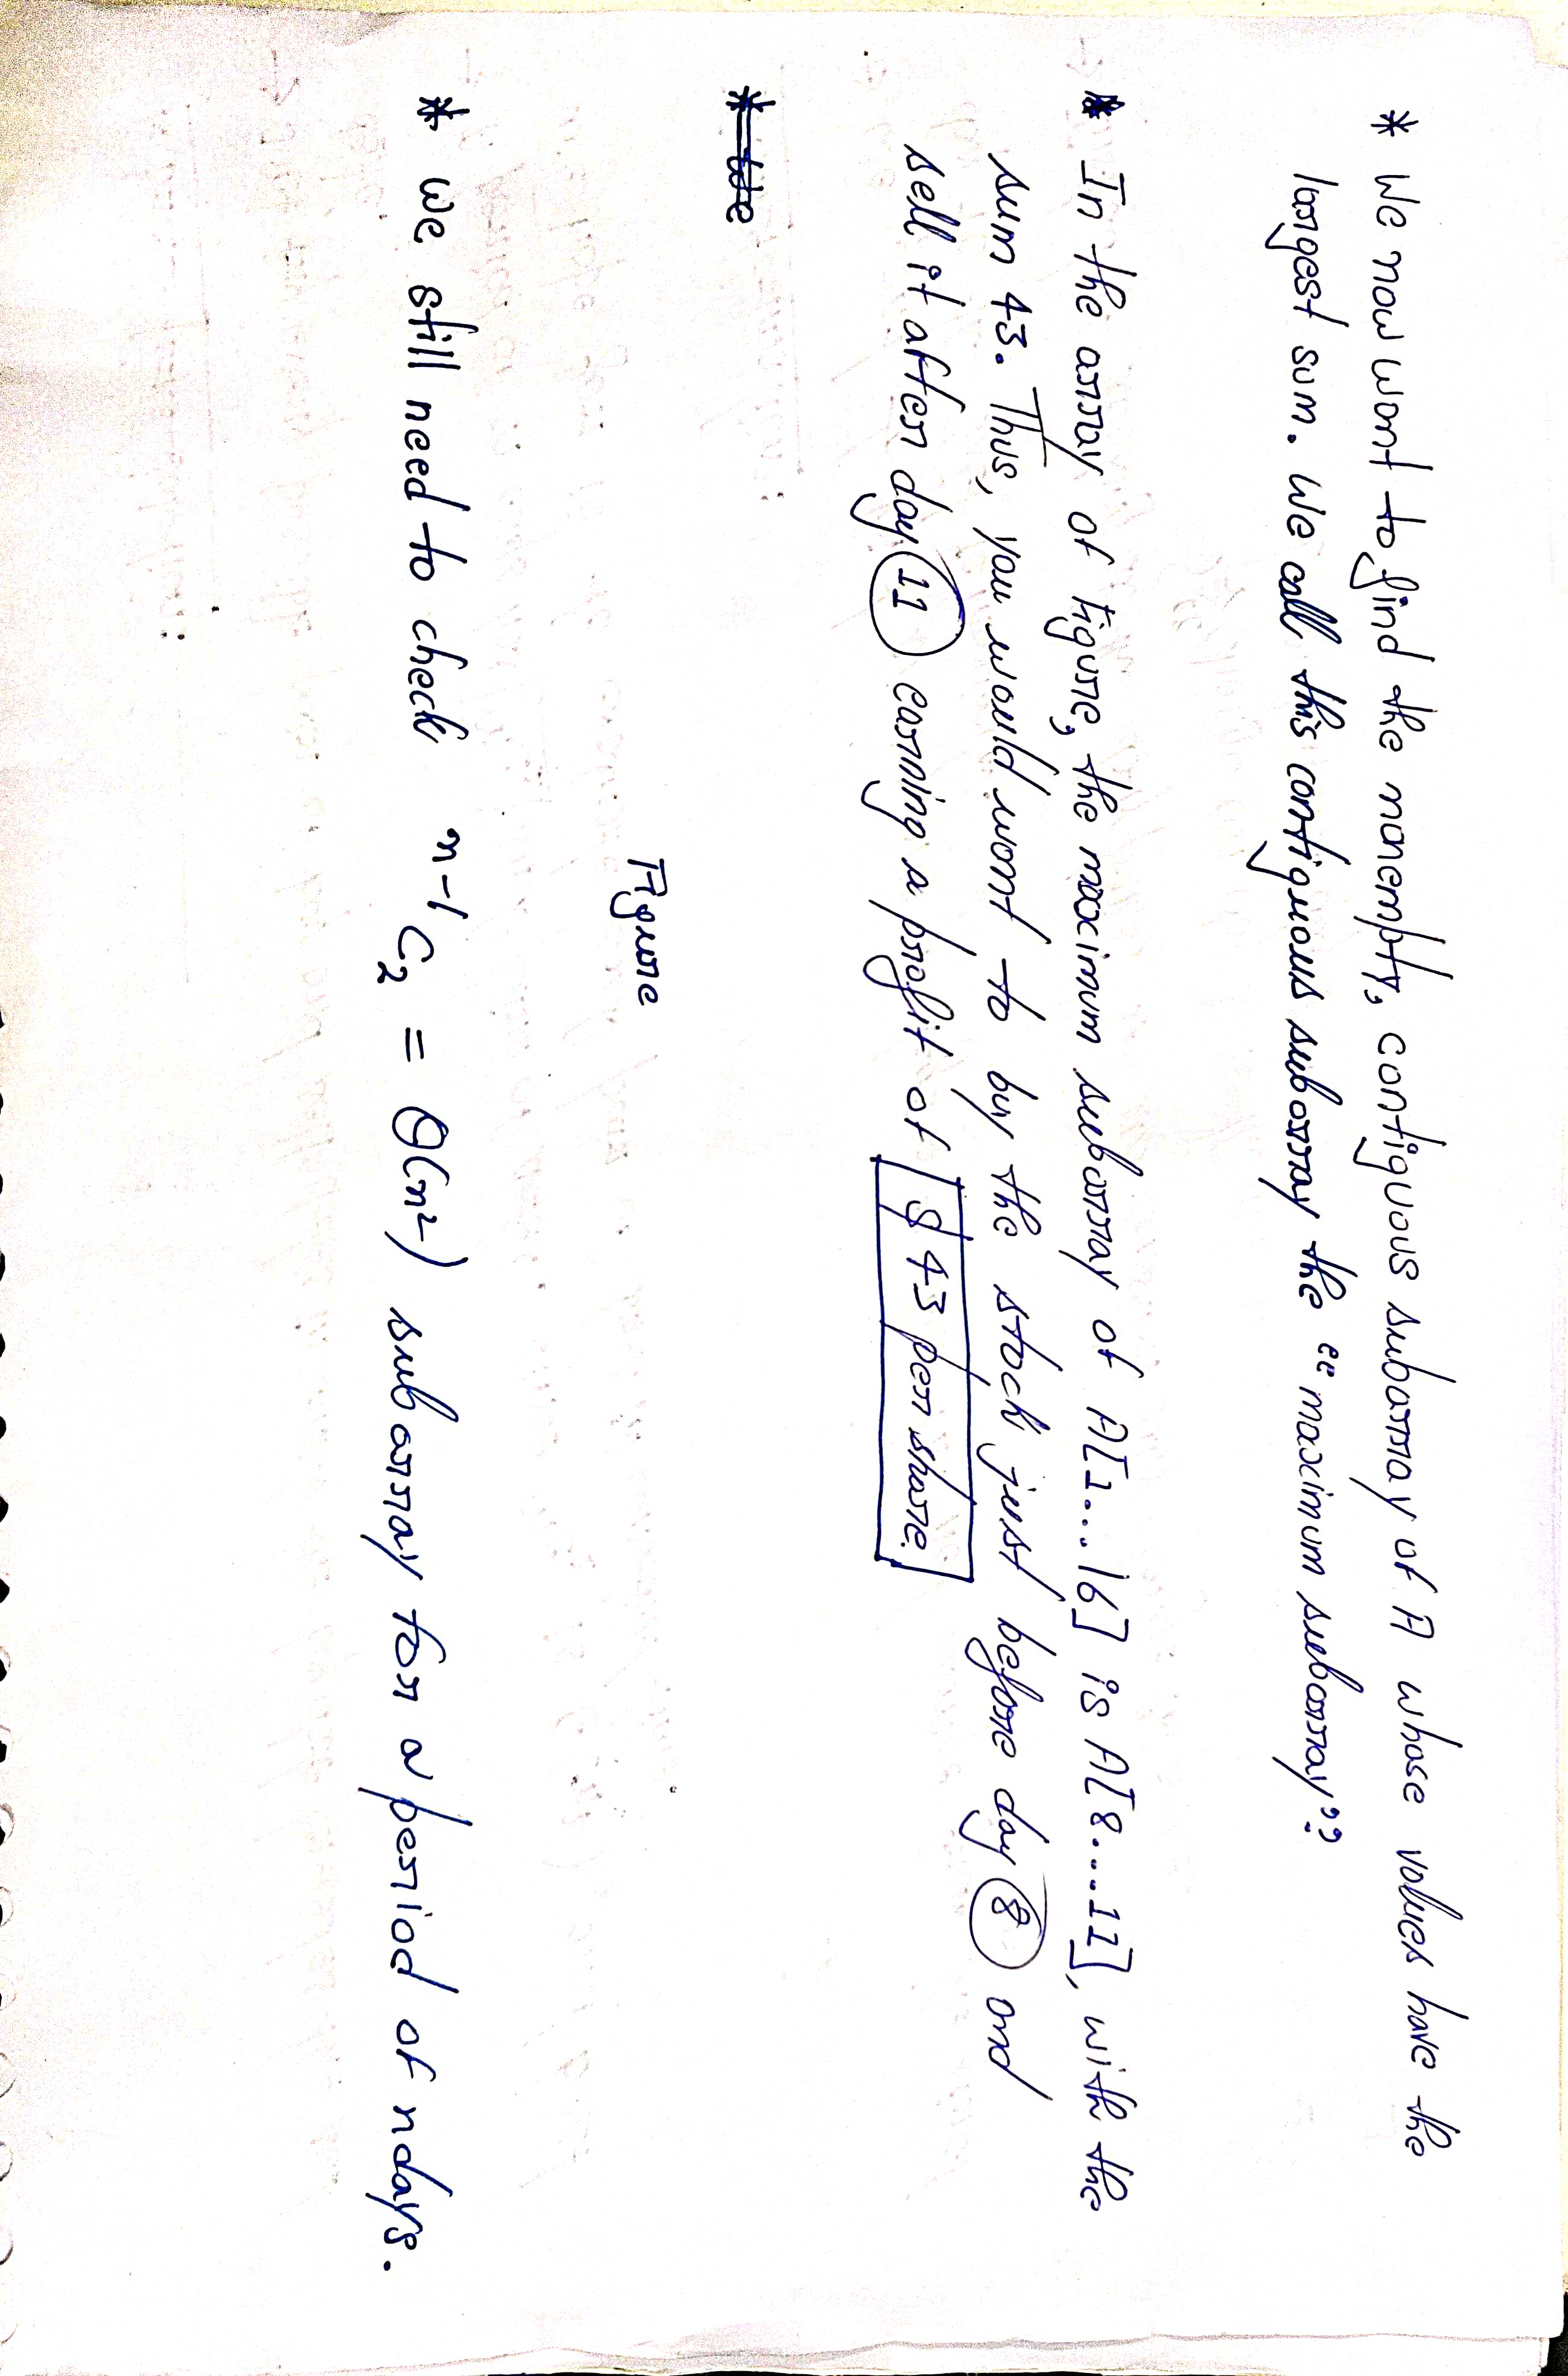 * We now want to find the nonempty, contiguous subarray of A whose values have the
largest sum. We call this contiguous subarray the "maximum subarray"
* In the array of figure, the maximum subarray of A[1...16] is A[8...11], with the
sum 43. Thus, you would want to by the stock just before day 8 and
sell it after day 11 earning a profit of $ 43 per share.
* We
Figure
* We still need to check n-1C2 = θ(n²) subarray for a period of n days.